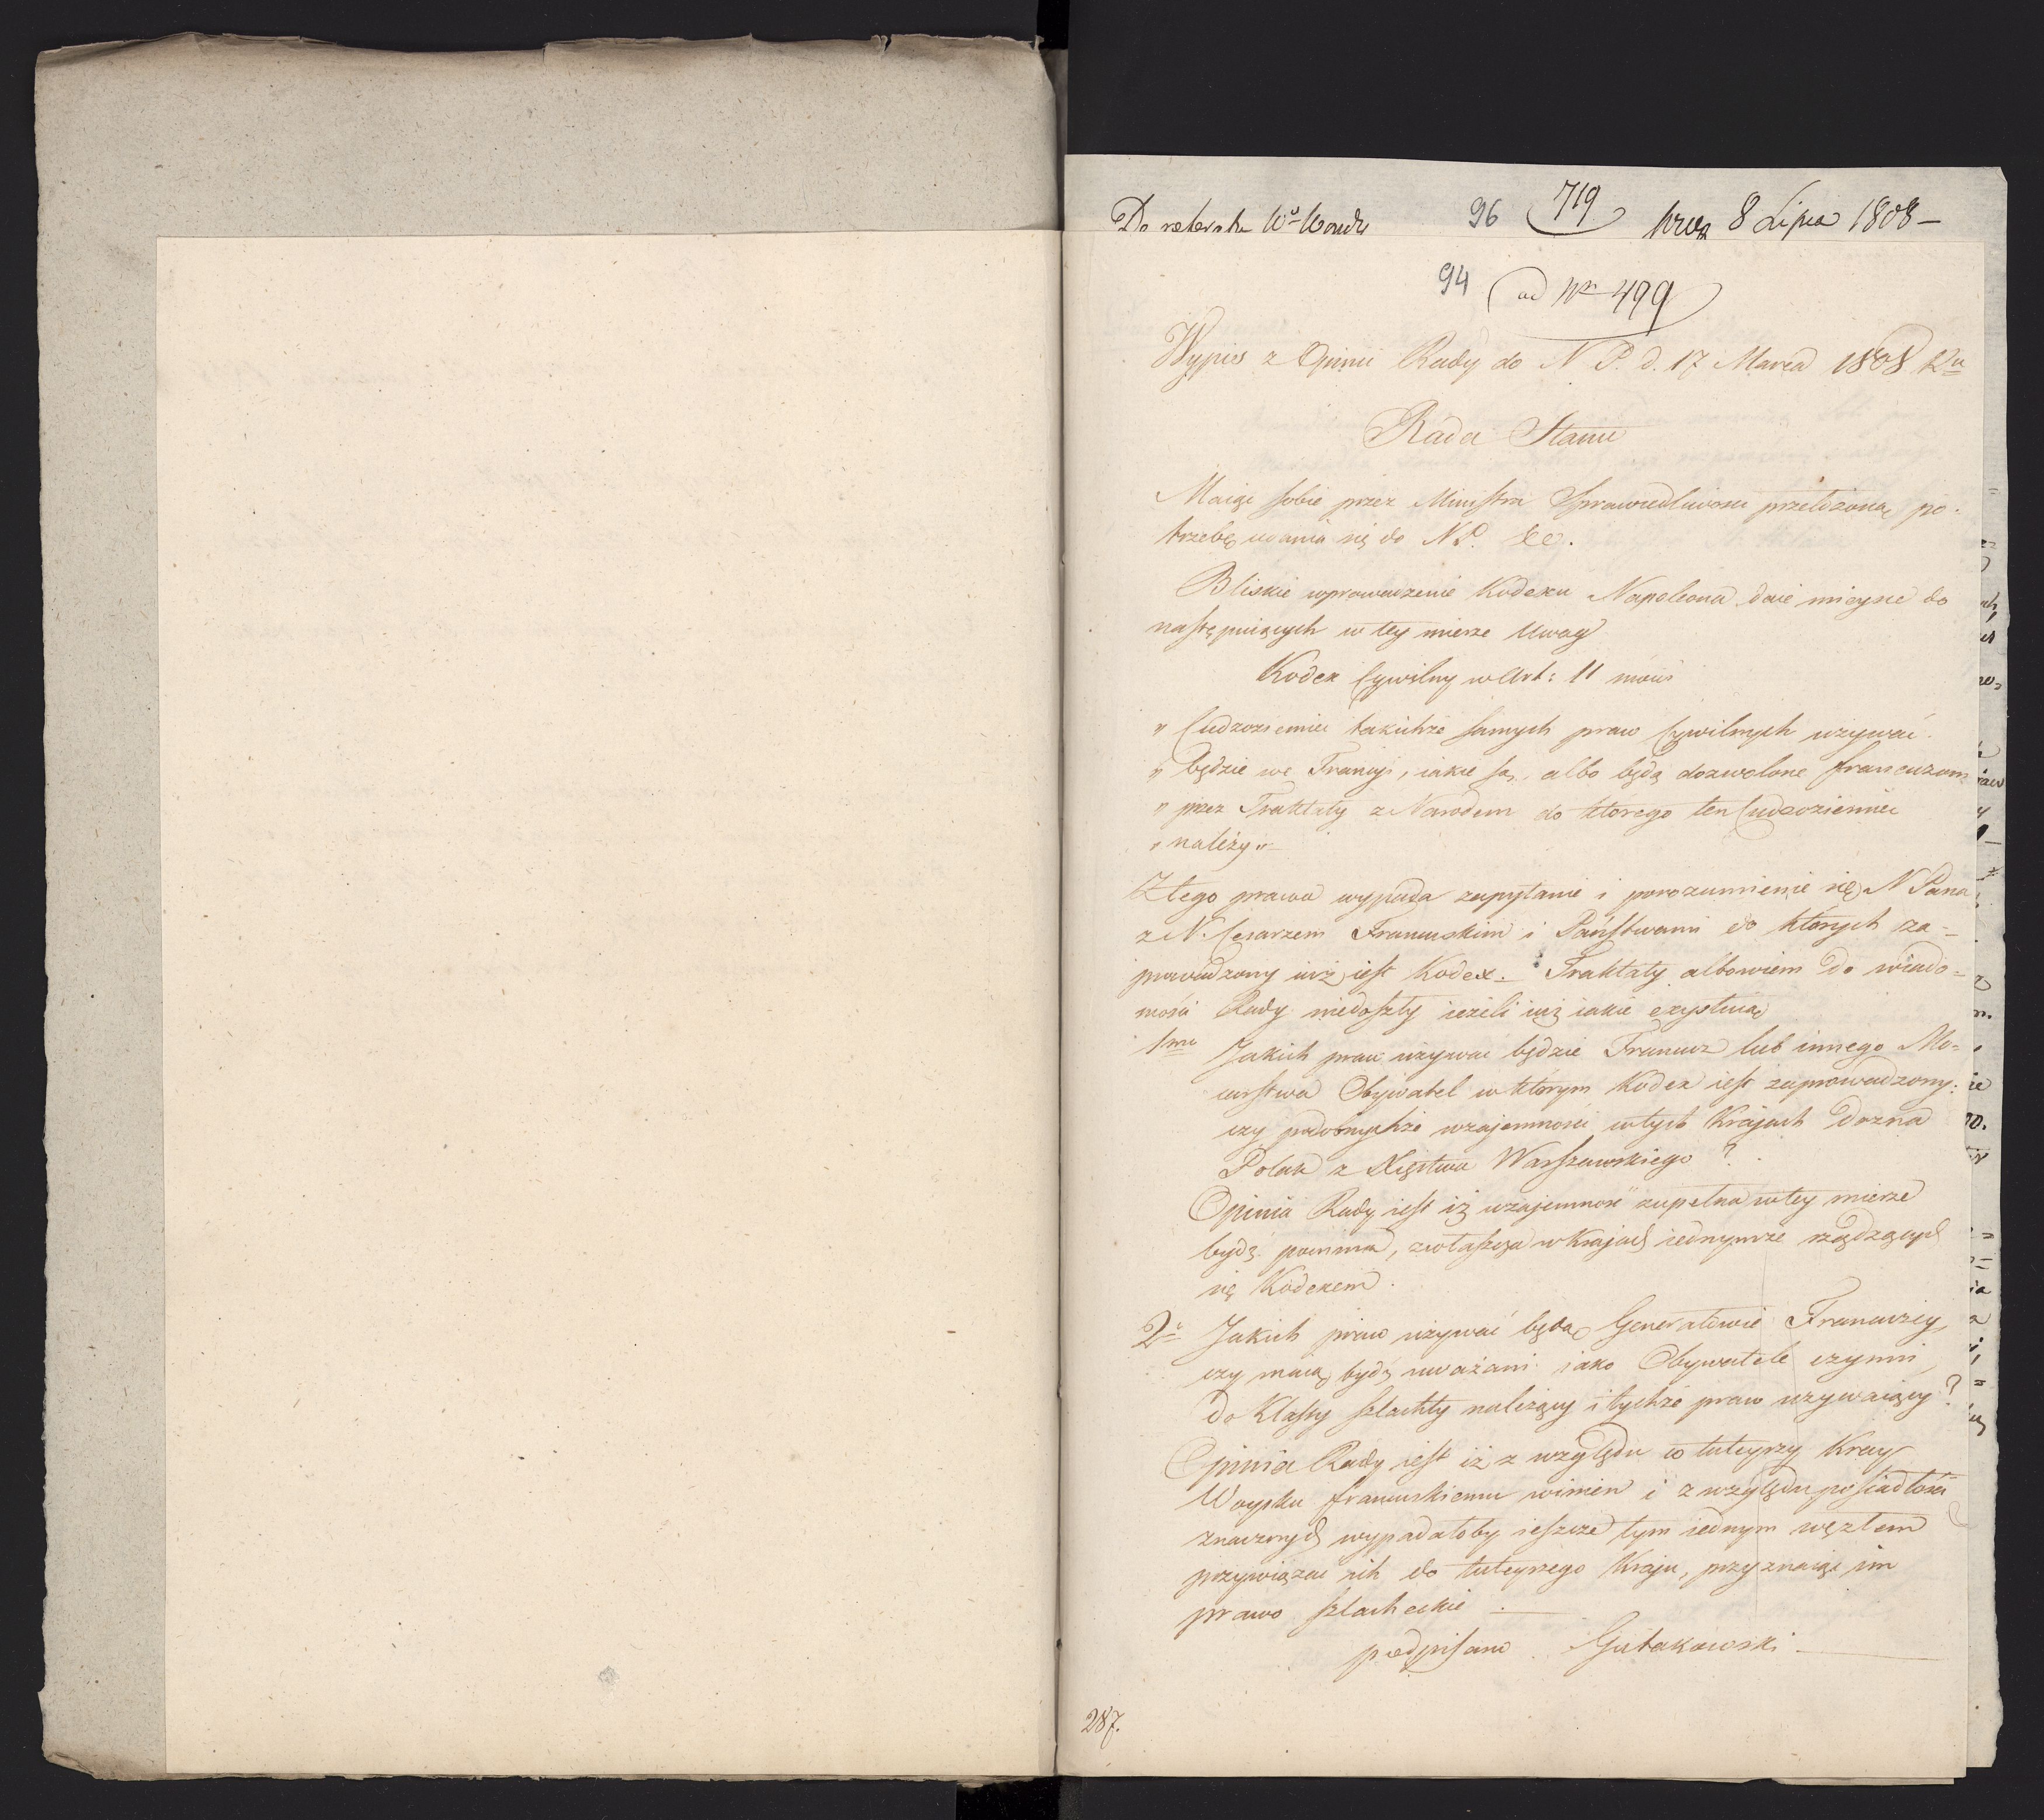 96 719 8 Lipca 1808 –
94 ad Nr 499
Wypis z Opinii Rady do N. P. d. 17 Marca 1808 Ru
Rada Stanu
Maiąc sobie przez Ministra Sprawiedliwości przełożoną po-
trzebę udania się do N P. &c.
Bliskie wprowadzenie Kodexu Napoleona daie mieysce do
następuiących w tey mierze Uwag
Kodex Cywilny w Art: 11 mówi
„ Cudzoziemiec takichże samych praw Cywilnych używać
„ będzie we Francyi, iakie są, albo będą dozwolone francuzom
„ przez Traktaty z Narodem do którego ten Cudzoziemiec
„ należy „ –
Z tego prawa wypada zapytanie i porozumienie się N Pana
z N. Cesarzem Francuskim i Państwami do których za-
prowadzony iuż iest Kodex. Traktaty albowiem do wiado-
mości Rady niedoszły ieżeli iuż iakie exystuią
1mo Jakich praw używać będzie Francuz lub innego Mo-
carstwa Obywatel w którym Kodex iest zaprowadzony:
czy podobneyże wzajemności w tych Krajach dozna
Polak z Xięstwa Warszawskiego ?
Opinia Rady iest iż wzajemność zupełna w tey mierze
bydź powinna, zwłaszcza w Krajach iednymże rządzących
się Kodexem.
2o Jakich praw używać będą Generałowie Francuzcy,
czy maią bydź uważani iako Obywatele czynni
do Klassy szlachty należący i tychże praw używaiący ?
Opinia Rady iest iż z względu co tuteyszy Kray
Woysku francuskiemu winien i z względu posiadłości
znacznych wypadałoby ieszcze tym iednym węzłem
przywiązać ich do tuteyszego Kraju, przyznaiąc im
prawo szlacheckie. –
podpisano Gutakowski –
287.